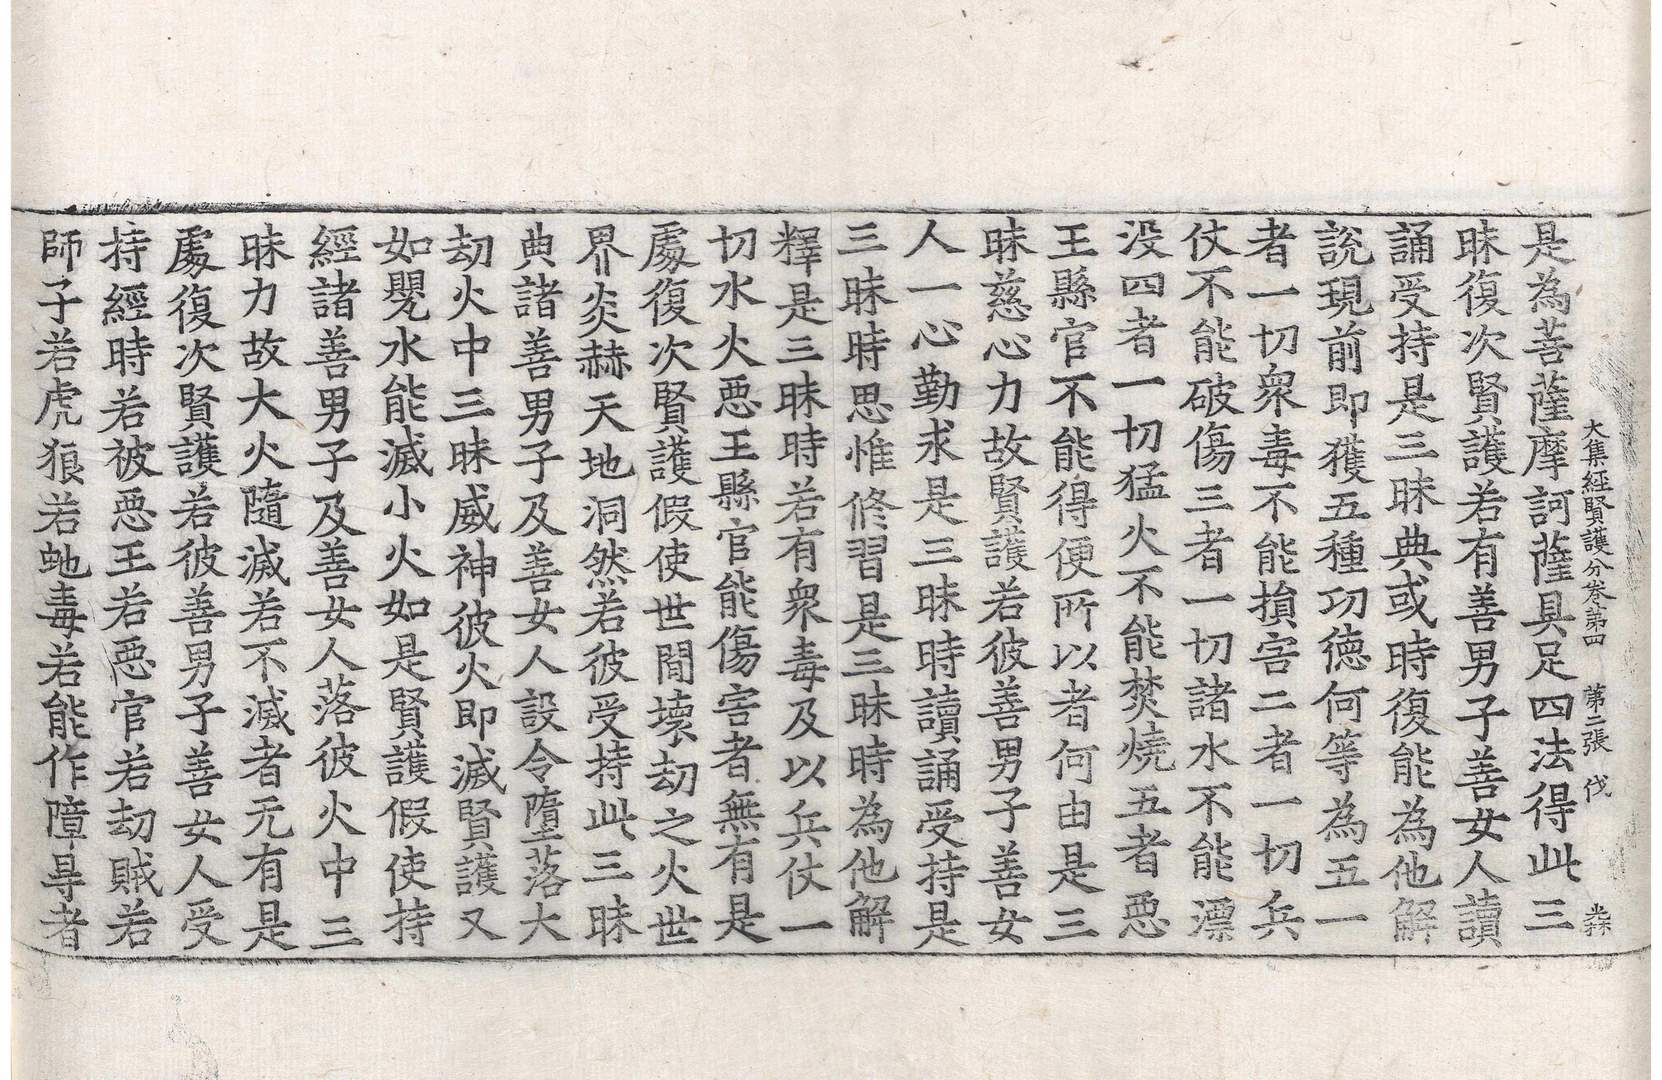 大集經賢護分卷第四 第二張 伐
是為菩薩摩訶薩具足四法得此三
昧復次賢護若有善男子善女人讀
誦受持是三昧典或時復能為他解
說現前即獲五種功德何等為五一
者一切衆毒不能損害二者一切兵
仗不能破傷三者一切諸水不能漂
没四者一切猛火不能焚燒五者惡
王縣官不能得便所以者何由是三
昧慈心力故賢護若彼善男子善女
人一心勤求是三昧時讀誦受持是
三昧時思惟修習是三昧時為他解
釋是三昧時若有衆毒及以兵仗一
切水火惡王縣官能傷害者無有是
處復次賢護假使世間壞劫之火世
界炎赫天地洞然若彼受持此三昧
典諸善男子及善女人設令墮落大
劫火中三昧威神彼火即滅賢護又
如甖水能滅小火如是賢護假使持
經諸善男子及善女人落彼火中三
昧力故大火隨滅若不滅者无有是
處復次賢護若彼善男子善女人受
持經時若被惡王若惡官若劫賊若
師子若虎狼若虵毒若能作障㝵者